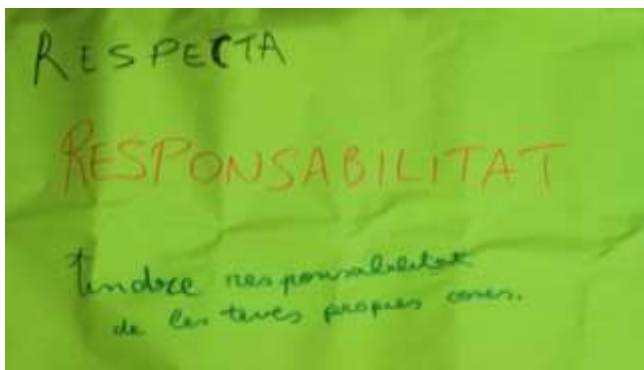 RESPECTA
RESPONSABILITAT
Tindre responsabilitat
de les teves propies coses.